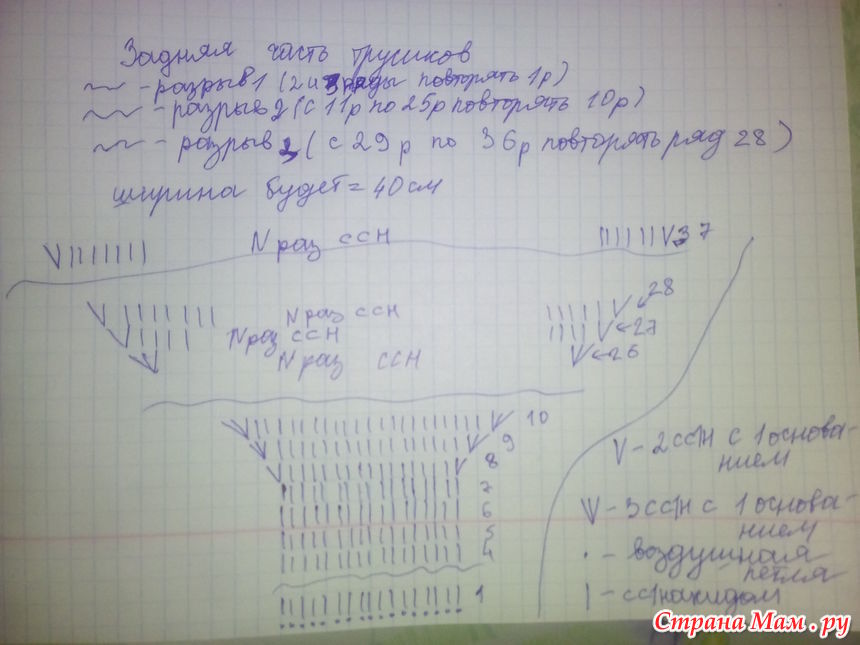 Задняя часть трусиков
- разрыв 1 (2 и 3 ряды повторять 1р)
- разрыв 2 (с 11р по 25р повторять 10р)
- разрыв 3 (с 29 р по 36р повторять ряд 28)
ширина будет = 40 см
N раз ССН 37
N раз ССН 28
N раз ССН 27
N раз ССН 26
10
9
8
7
6
5
4
1
V - 2ССН с 1 основа-
нием
V - 3ССН с 1 основа-
нием
. - воздушная
петля
| - сс1накидом
Страна Мам.ру